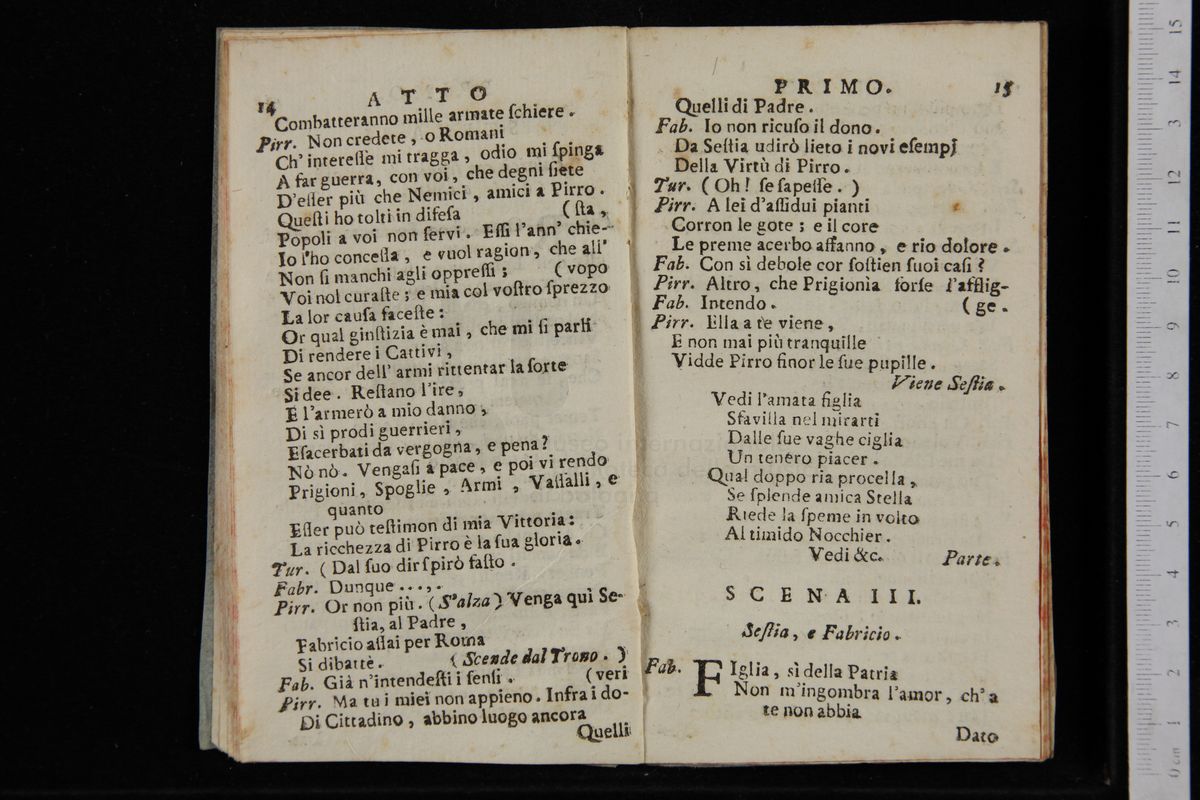 14 ATTO
Combatteranno mille armate ſchiere.
Pirr. Non credete, o Romani
Ch' intereſſe mi tragga, odio mi ſpinga
A far guerra, con voi, che degni ſiete
D'eſſer più che Nemici, amici a Pirro.
Queſti ho tolti in difeſa (ſta,
Popoli a voi non ſervi. Eſſi l'ann' chie-
Io l'ho conceſſa, e vuol ragion, che all'
Non ſi manchi agli oppreſſi; (vopo
Voi nol curaſte; e mia col voſtro ſprezzo
La lor cauſa faceſte:
Or qual giuſtizia è mai, che mi ſi parli
Di rendere i Cattivi,
Se ancor dell' armi rittentar la ſorte
Si dee. Reſtano l'ire,
E l'armerò a mio danno,
Di sì prodi guerrieri,
Eſacerbati da vergogna, e pena?
Nò nò. Vengaſi a pace, e poi vi rendo
Prigioni, Spoglie, Armi, Vaſſalli, e
quanto
Eſſer può teſtimon di mia Vittoria:
La ricchezza di Pirro è la ſua gloria.
Tur. (Dal ſuo dir ſpirò faſto.
Fabr. Dunque ....,.
Pirr. Or non più. (S'alza) Venga quì Se-
ſtia, al Padre,
Fabricio aſſai per Roma
Si dibattè. (Scende dal Trono.)
Fab. Già n'intendeſti i ſenſi. (veri
Pirr. Ma tu i miei non appieno. Infra i do-
Di Cittadino, abbino luogo ancora
Quelli
PRIMO. 15
Quelli di Padre.
Fab. Io non ricuſo il dono.
Da Seſtia udirò lieto i novi eſempj
Della Virtù di Pirro.
Tur. (Oh! ſe ſapeſſe.)
Pirr. A lei d'aſſidui pianti
Corron le gote; e il core
Le preme acerbo affanno, e rio dolore.
Fab. Con sì debole cor ſoſtien ſuoi caſi?
Pirr. Altro, che Prigionia forſe l'afflig-
Fab. Intendo. (ge.
Pirr. Ella a te viene,
E non mai più tranquille
Vidde Pirro finor le ſue pupille.
Viene Seſtia.
Vedi l'amata figlia
Sfavilla nel mirarti
Dalle ſue vaghe ciglia
Un tenero piacer.
Qual doppo ria procella,
Se ſplende amica Stella
Riede la ſpeme in volto
Al timido Nocchier.
Vedi &c. Parte.
SCENA III.
Seſtia, e Fabricio.
Fab. FIglia, sì della Patria
Non m'ingombra l'amor, ch'a
te non abbia
Dato